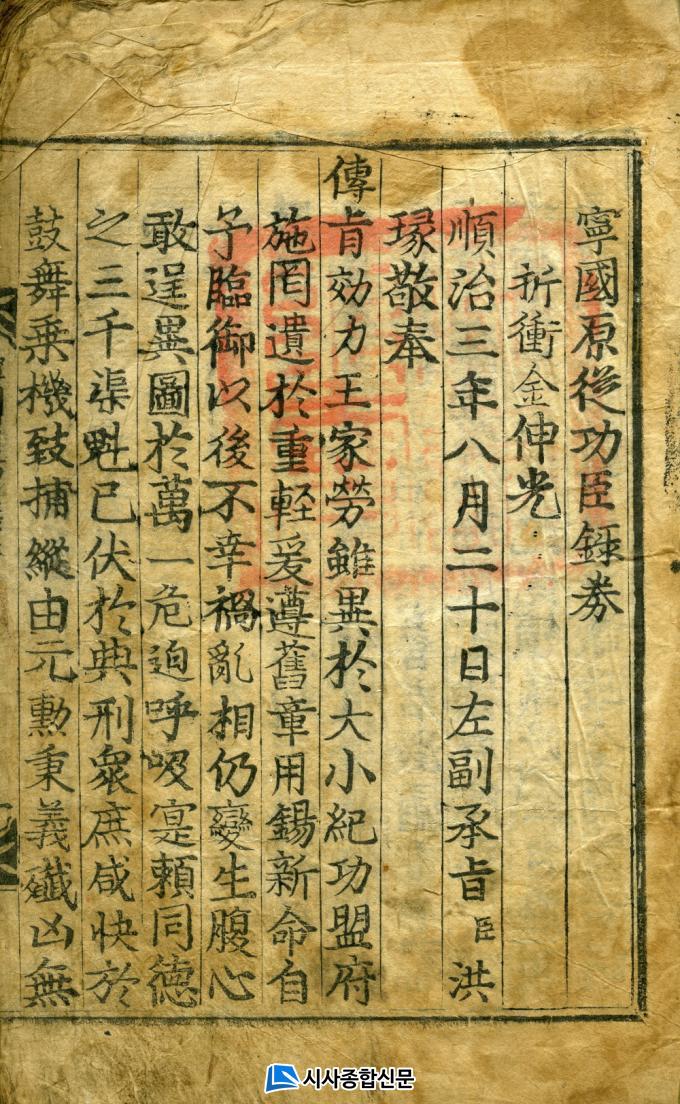 寧國原從功臣錄券
折衝金伸光
順治三年八月二十日左副承旨臣洪
瑑敬奉
傳旨効力王家勞雖異於大小紀功盟府
施罔遺於重輕爰遵舊章用錫新命自
予臨御以後不幸禍亂相仍變生腹心
敢逞異圖於萬一危迫呼吸寔賴同德
之三千渠魁已伏於典刑衆庶咸快於
鼓舞乗機致捕縱由元勳秉義殲凶無
시사종합신문